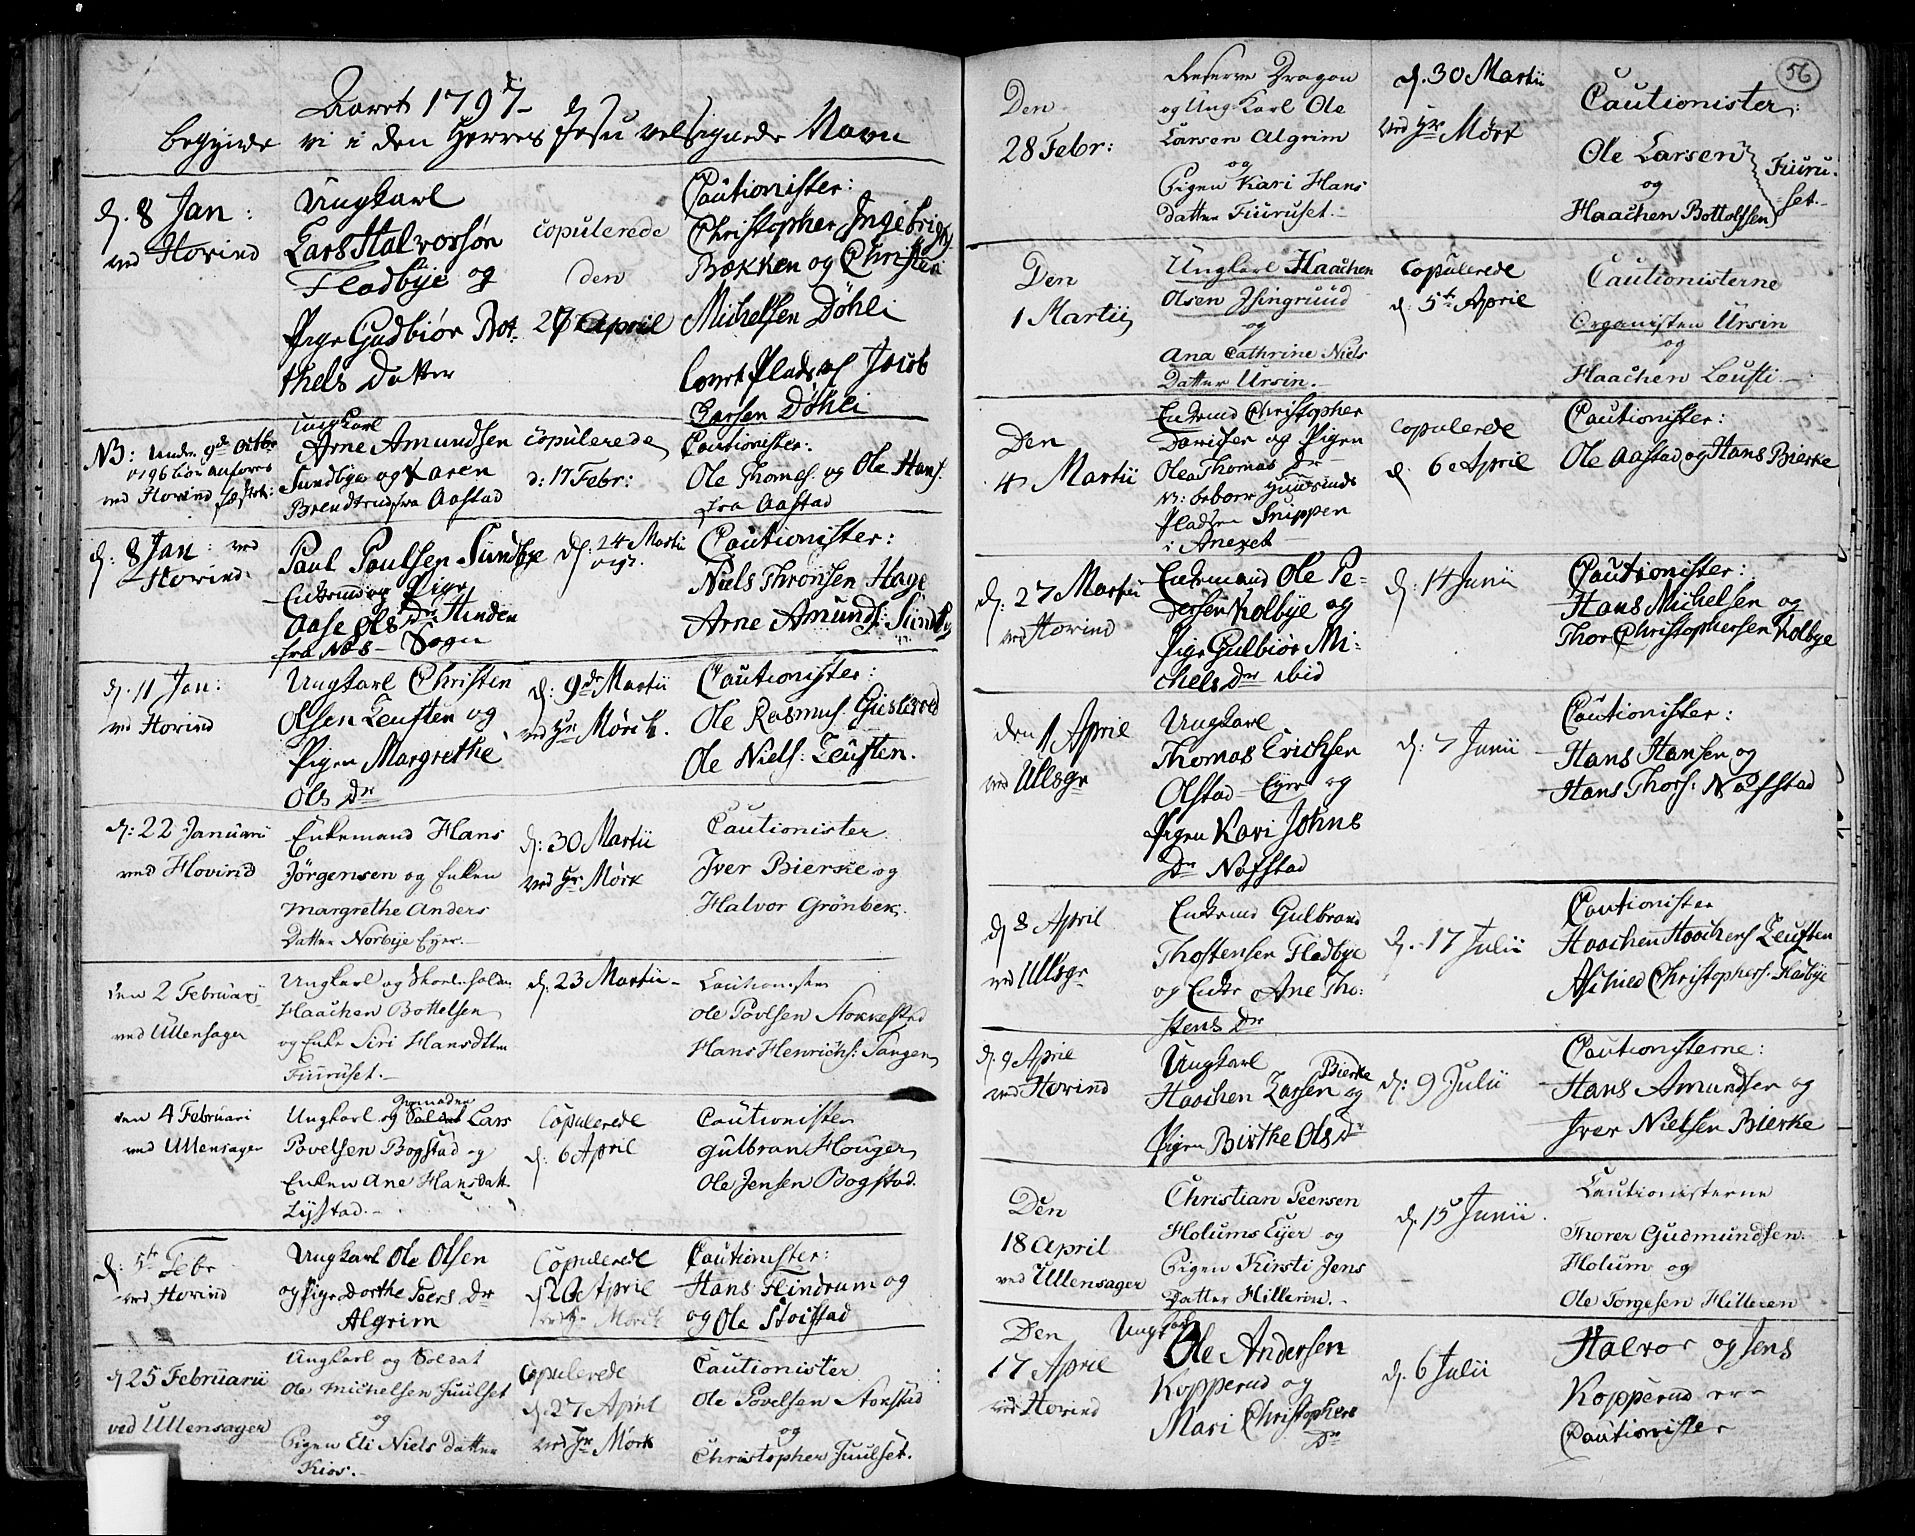 Aaret 1797
begynde vi i den Herres Jesu velsignede Navn
d. 8 Jan:
ved Hovind
Ungkarl
Lars Halvorsøn
Fladbye og
Pige Gudbiør Bot-
thels Datter
copulerede
den
April
Cautionister:
Christopher Ingebrigts
Bækken og Christen
Michelsen Döhli
Jacob
Larsen Döhli
NB: under 9de Octbr
1796 bør anføres
ved Hovind
Ungkarl
Arne Amundsen
Sundbye og Karen
Brendtrud fra Aastad
copulerede
d: 17 Febr:
Cautionister:
Ole Thomes. og Ole Hans.
fra Aastad
d: 8 Jan: ved
Hovind
Paul Paulsen Sundbye
Enkemd og Pige
Aase Ols Dr Hinden
fra Næs Sogn
d: 24 Martii
Cautionister:
Niels Thronsen Hage
Arne Amunds: Sundby
d. 11 Jan:
ved Hovind
Ungkarl Christen
Olsen Leusten og
Pigen Margrethe
Ols Dr
d: 9de Martii
ved Hr Mörck.
Cautionister:
Ole Rasmus. Gislevold
Ole Niels: Leusten.
d: 22 Januari
ved Hovind
Enkemand Hans
Jörgensen og Enken
Margrethe Anders
Datter Norbye Eyer.
d: 30 Martii
ved Hr Mörk
Cautionister
Iver Bierke og
Halvor Grönbek.
den 2 Februarj
ved Ullensager
Ungkarl og
Haachen Bottelsen
og Enke Siri Hansdtter
Fiuruset.
d: 23 Martii
Cautionister
Ole Povlsen Nokkestad
Hans Henrichs: Tangen
den 4 Februari
ved Ullensager
Grenader
Ungkarl og Soldat Lars
Povelsen Bogstad og
Enken Ane Hansdatt
Lystad.
Copulerede
d. 6 April
Cautionister
Gulbran Houger
Ole Jensen Bogstad.
d: 5te Febr
ved Hovind
Ungkarl Ole Olsen
og Pige Dorthe Peers Dr
Algrim
Copulerede
April
ved Hr Mörck
Cautionister:
Hans Hindrum og
og Ole Stoistad
d 25 Februarii
ved Ullensager
Ungkarl og Soldat
Ole Michelsen Juulset
og
Pigen Eli Niels Datter
Kios.
Copulerede
d. 27 April
ved Hr Mörk
Cautionister
Ole Povelsen Nokstad
og
Christopher Juulset.
56
Den
28 Febr:
Reserve Dragon
og Ungkarl Ole
Larsen Algrim
og
Pigen Kari Hans
datter Fiuruset.
d. 30 Martii
ved Hr Mörk
Cautionister:
Ole Larsen
og
Haachen Bottolfsen
Fiuru-
set.
Den
1 Martii
Ungkarl Haachen
Olsen Isingruud
og
Ana Cathrine Niels
Datter Ursin.
Copulerede
d. 5te April
Cautionisterne
Organisten Ursin
og
Haachen Lousti.
Den
4 Martii
Enkemd Christopher
Davidsen og Pigen
Olea Thomas Dr
NB: beboer
Pladsen Snippen
i Anexet
copulerede
d. 6 April
Cautionister:
Ole Aastad og Hans Bierke
d: 27 Martii
ved Hovind
Enkemand Ole Pe-
dersen Kolbye og
Pige Gulbiör Mi-
chels Dr ibid
d: 14 Junii
Cautionister:
Hans Michelsen og
Thor Christophersen Kolbye
den 1 April
ved Ullsgr
Ungkarl
Thomas Erichsen
Olstad Eyer og
Pigen Kari Johns
Dr Nafstad
d: 7 Junii
Cautionister:
Hans Hansen og
Hans Thors: Nafstad
d 8 April
ved Ullsgr
Enkemd Gulbrand
Thostensen Fladbye
og Enke Ane Tho:
stens Dr
d. 17 Julii
Cautionister
Haachen Haachens Leusten
Christophers. Fladbye
d. 9 April
ved Hovind
Ungkarl
Bierke
Haachen Larsen og
Pigen Birthe Ols Dr
d: 9 Julii
Cautionisterne:
Hans Amundsen og
Iver Nielsen Bierke
Den
18 April
ved Ullensager
Christian Peersen
Holums Eyer og
Pigen Kirsti Jens
Datter Hilleren.
d. 15 Junii.
Cautionisterne
Thorer Gudmundsen
Holum og
Ole Torgesen Hilleren
Den
17 April
ved Hovind
Ungkarl
Ole Andersen
Kopperud og
Mari Christophers
Dr
d. 6 Julii
Halvor og Jens
Kopperud ere
Cautionister